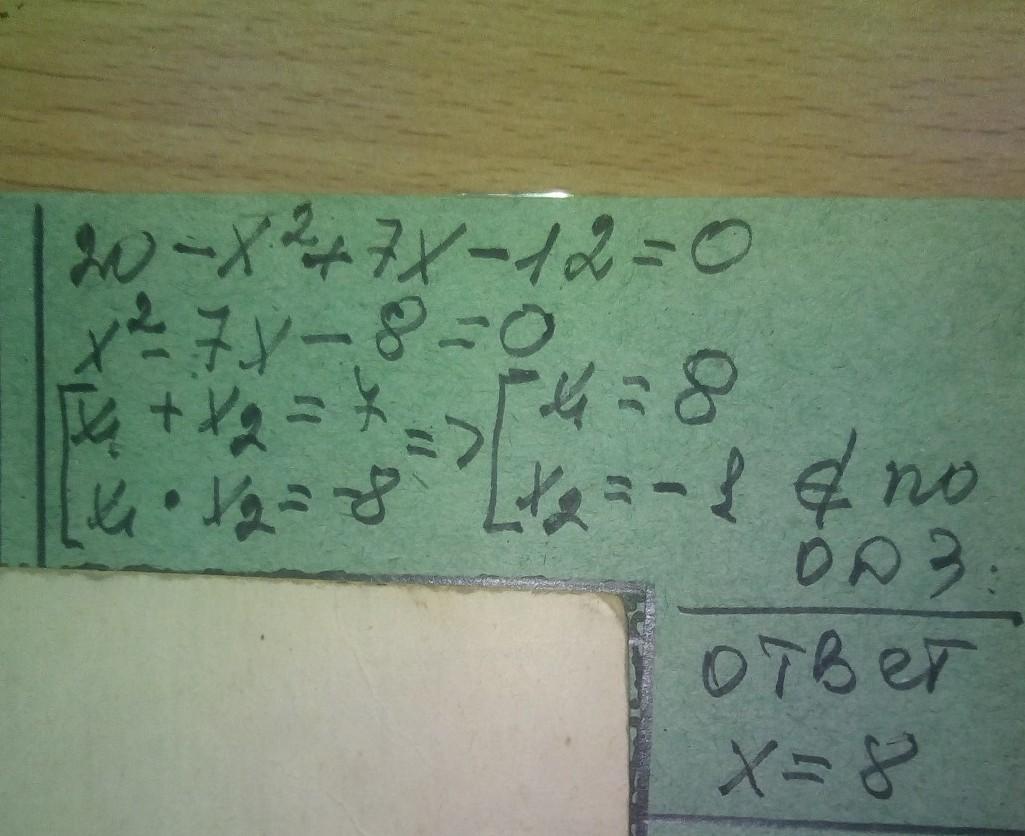 20 - x² + 7x - 12 = 0
x² - 7x - 8 = 0
[ x₁ + x₂ = 7 => [ x₁ = 8
[ x₁ · x₂ = -8 [ x₂ = -1 ∉ по
ОДЗ.
ответ
x = 8